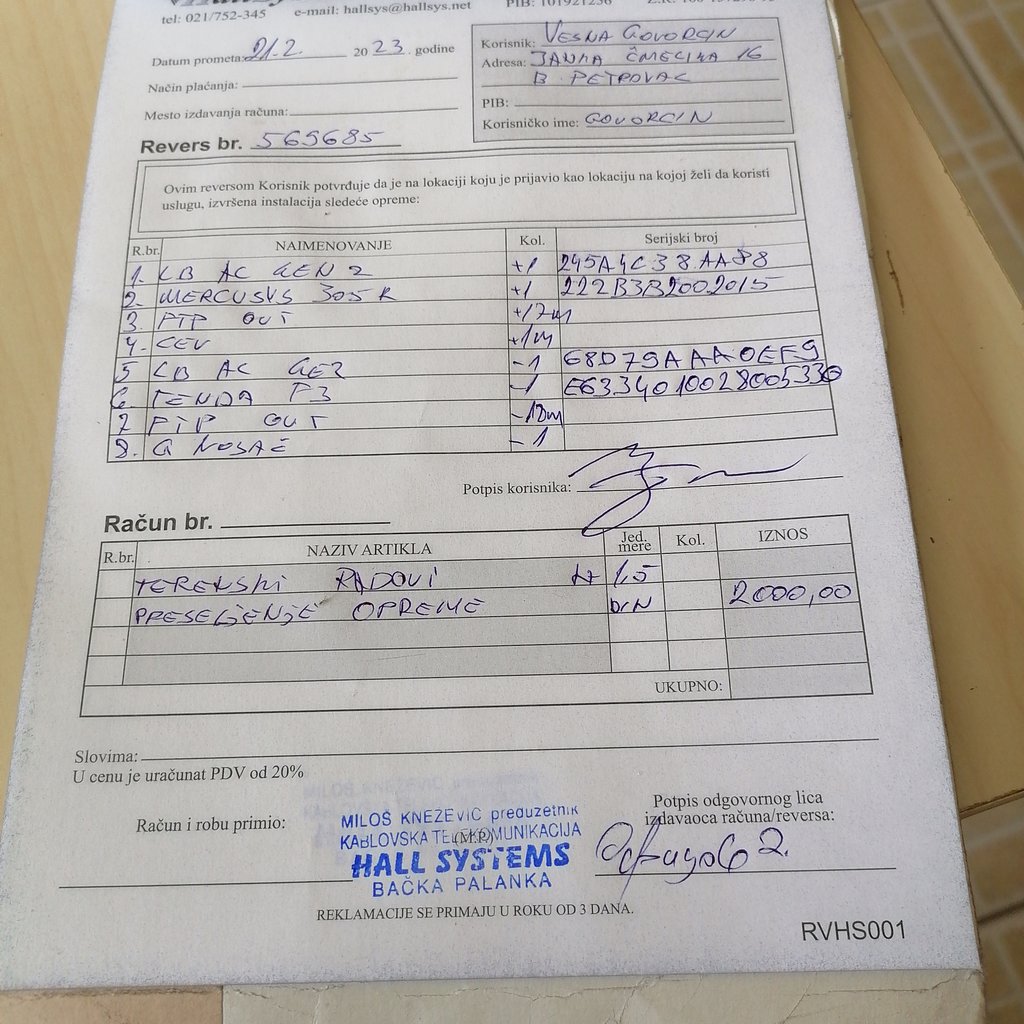 tel: 021/752-345 e-mail: hallsys@hallsys.net
Datum prometa: 21.2. 2023. godine
Način plaćanja:
Mesto izdavanja računa:
Korisnik: VESNA GOVORCIN
Adresa: JANKA ČMELIKA 16
B. PETROVAC
PIB:
Korisničko ime: GOVORCIN
Revers br. 569685
Ovim reversom Korisnik potvrđuje da je na lokaciji koju je prijavio kao lokaciju na kojoj želi da koristi
uslugu, izvršena instalacija sledeće opreme:
R.br. NAIMENOVANJE Kol. Serijski broj
1. LB AC GEN 2 +1 245A4C38AA88
2. MERCUSYS 305R +1 222B3B2002015
3. FTP OUT +17m
4. CEV +1m
5 LB AC GE2 -1 68D79AAA0EF9
6. TENDA F3 -1 E6334010028005330
7 FTP OUT -18m
8. G NOSAČ -1
Potpis korisnika:
Račun br.
R.br. NAZIV ARTIKLA Jed. mere Kol. IZNOS
TERENSKI RADOVI 1,5
PRESELJENJE OPREME 2000,00
UKUPNO:
Slovima:
U cenu je uračunat PDV od 20%
Račun i robu primio:
MILOŠ KNEŽEVIĆ preduzetnik
KABLOVSKA TELEKOMUNIKACIJA
(M.P.)
HALL SYSTEMS
BAČKA PALANKA
Potpis odgovornog lica
izdavaoca računa/reversa:
REKLAMACIJE SE PRIMAJU U ROKU OD 3 DANA.
RVHS001